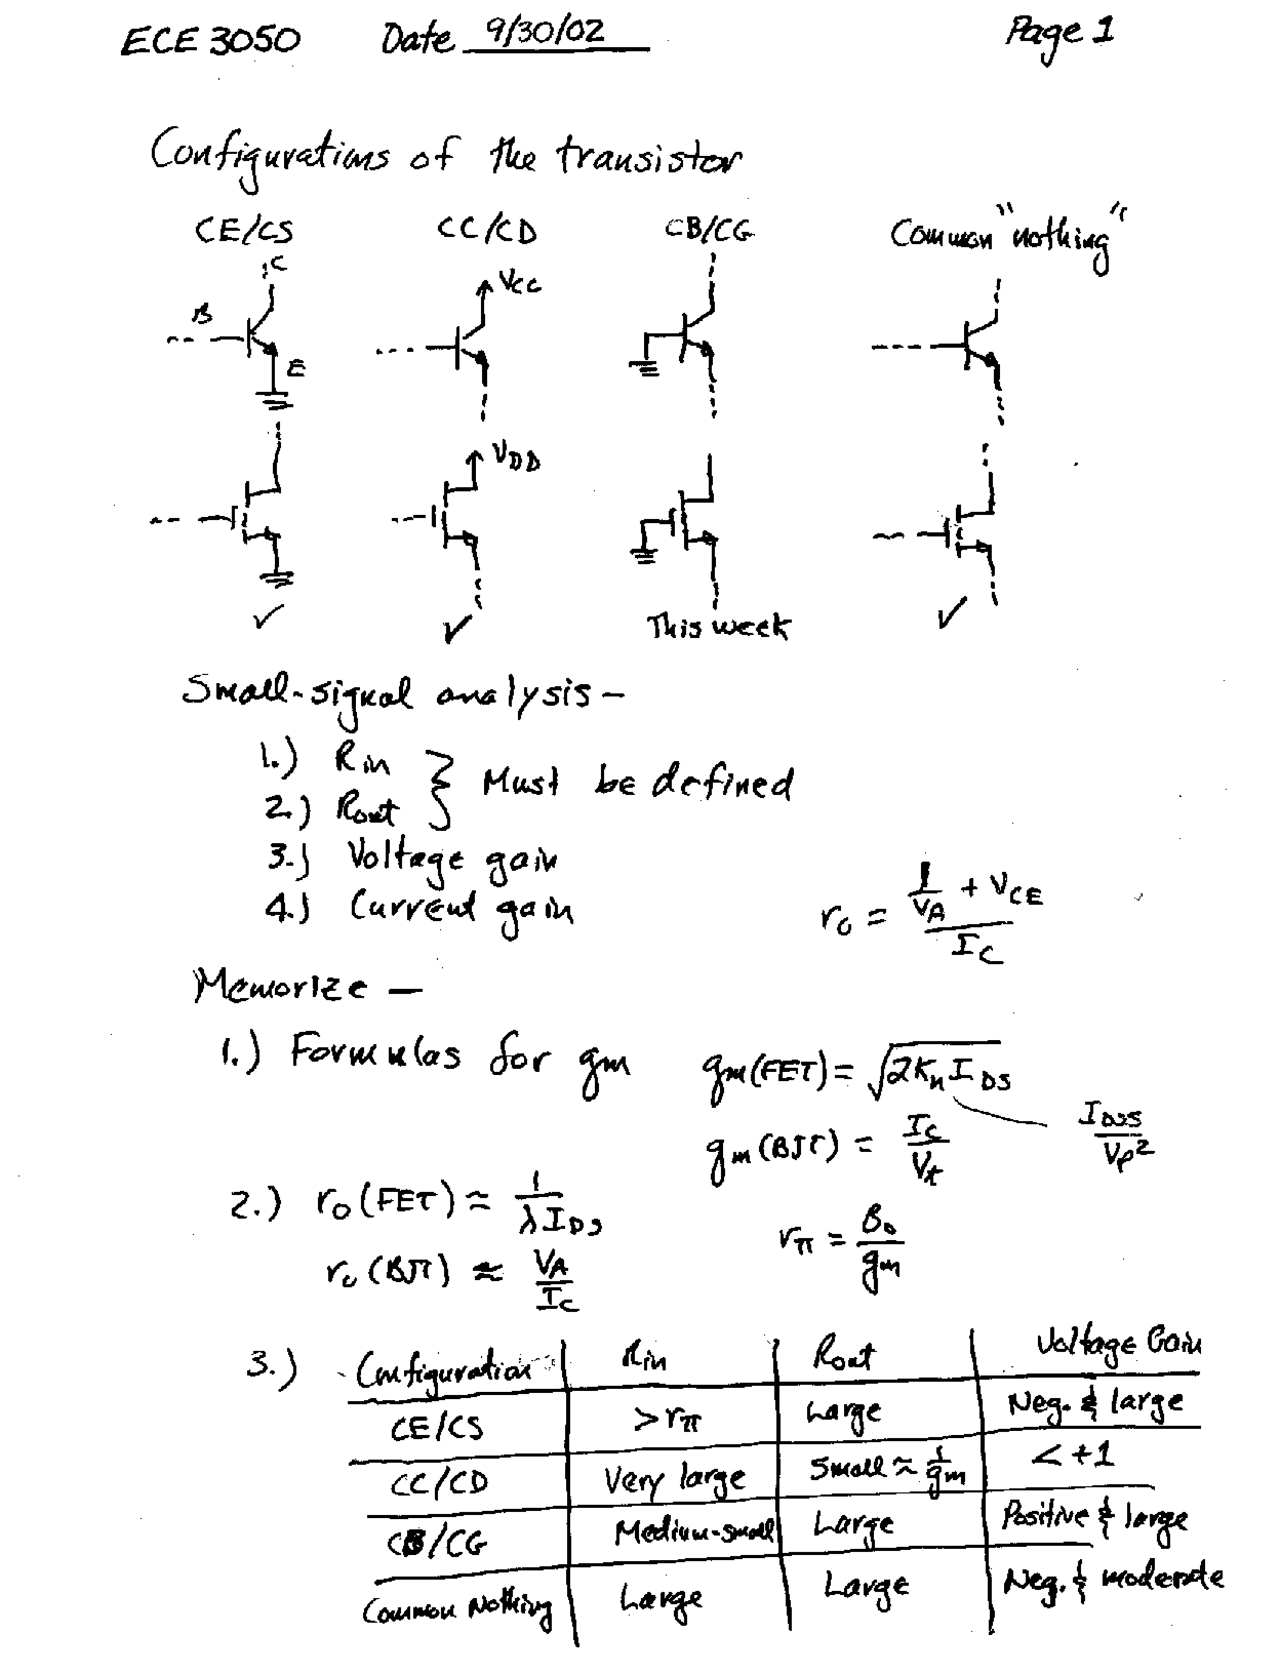 ECE 3050 Date 9/30/02 Page 1
Configurations of the transistor
CE/CS CC/CD CB/CG Common "nothing"
C
B
E
VCC
VDD
✓ ✓ This week ✓
Small-signal analysis –
1.) Rin
2.) Rout } Must be defined
3.) Voltage gain
4.) Current gain
ro = (1/VA + VCE)/IC
Memorize —
1.) Formulas for gm gm(FET) = √(2KnIDS)
IDSS/Vp²
gm(BJT) = IC/Vt
2.) ro(FET) ≈ 1/(λIDS)
rπ = Bo/gm
ro(BJT) ≈ VA/IC
3.) Configuration Rin Rout Voltage Gain
CE/CS >rπ Large Neg. & large
CC/CD Very large Small ≈ 1/gm < +1
CB/CG Medium-small Large Positive & large
Common Nothing Large Large Neg. & moderate